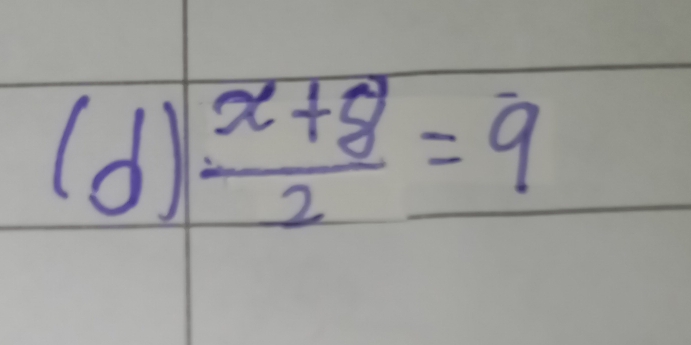 (d) \frac{x+8}{2} = 9